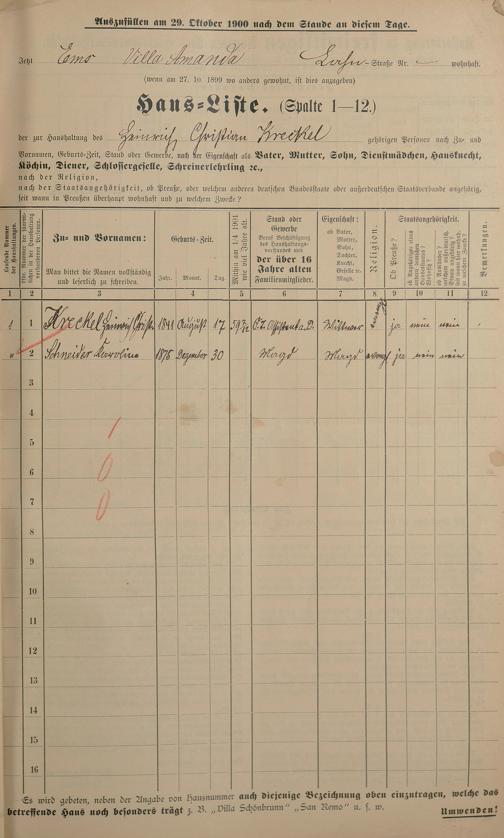 Auszufüllen am 29. Oktober 1900 nach dem Stande an diesem Tage.
Jetzt Ems Villa Amanda Lahn-Straße Nr. — wohnhaft.
(wenn am 27. 10. 1899 wo anders gewohnt, ist dies anzugeben)
Haus-Liste. (Spalte 1—12.)
der zur Haushaltung des Heinrich Christian Kreckel gehörigen Personen nach Zu- und
Vornamen, Geburts-Zeit, Stand oder Gewerbe, nach der Eigenschaft als Vater, Mutter, Sohn, Dienstmädchen, Hausknecht,
Köchin, Diener, Schlossergeselle, Schreinerlehrling ꝛc.,
nach der Religion,
nach der Staatsangehörigkeit, ob Preuße, oder welchem anderen deutschen Bundesstaate oder außerdeutschen Staatsverbande angehörig,
seit wann in Preußen überhaupt wohnhaft und zu welchem Zwecke?
Laufende Nummer der Haushaltungen.
Zu- und Vornamen:
Man bittet die Namen vollständig
und leserlich zu schreiben.
Geburts-Zeit.
Jahr. Monat. Tag
Mithin am 1/4 1901
wie viel Jahre alt.
Stand oder
Gewerbe
Beruf Beschäftigung
des Haushaltungs-
vorstandes und
der über 16
Jahre alten
Familienmitglieder.
Eigenschaft:
ob Vater,
Mutter,
Sohn,
Tochter,
Knecht,
Geselle ꝛc.
Magd.
Religion
Staatsangehörigkeit.
Ob Preuße?
Bemerkungen.
1 2 3 4 5 6 7 8 9 10 11 12
1 1 Kreckel Heinrich Christ. 1841 August 17 a.D. Wittwer evang. ja nein nein
" 2 Schneider Karoline 1876 Dezember 30 Magd Magd evang. ja nein nein
3
4
1
5
6
0
7
0
8
9
10
11
12
13
14
15
16
Es wird gebeten, neben der Angabe von Hausnummer auch diejenige Bezeichnung oben einzutragen, welche das
betreffende Haus noch besonders trägt z. B. „Villa Schönbrunn" „San Remo" u. s. w. Umwenden!